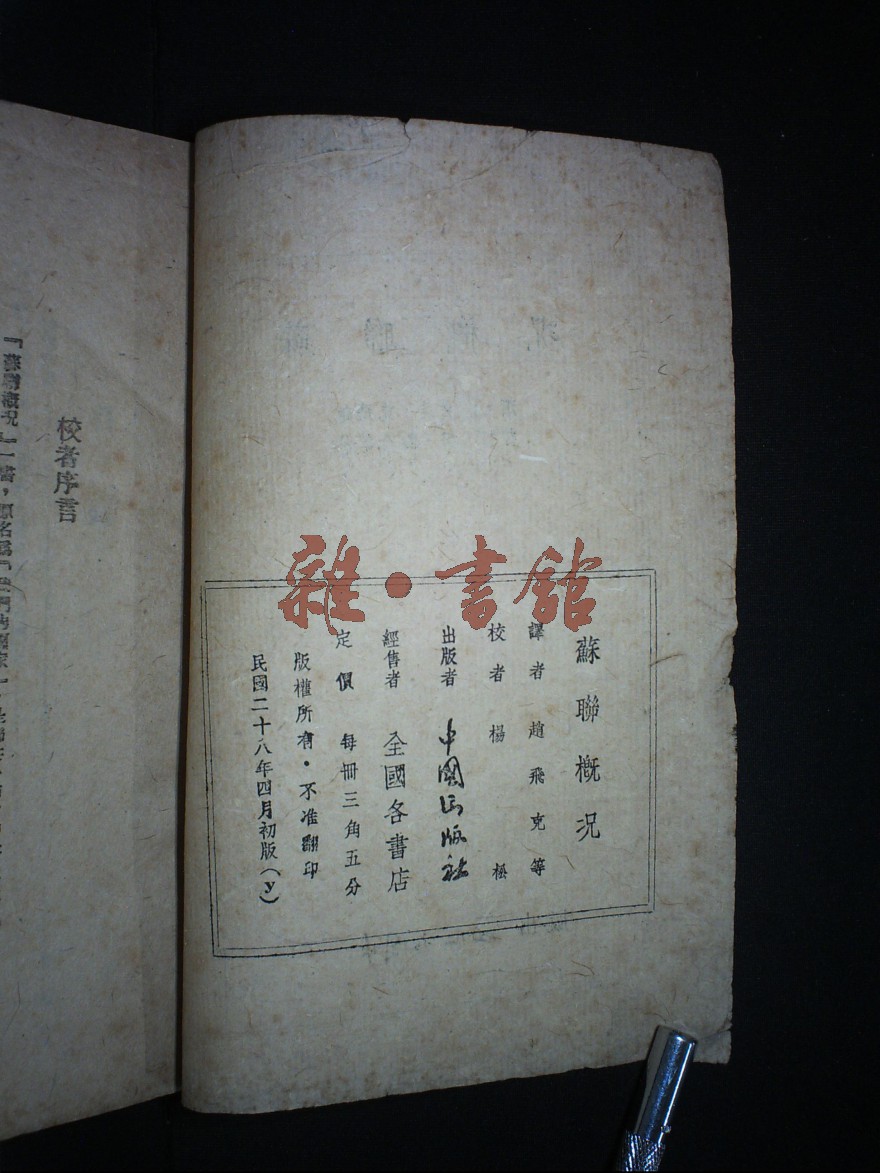 雜·書館
蘇聯概況
譯者 趙飛克等
校者 楊松
出版者 中國出版社
經售者 全國各書店
定價 每冊三角五分
版權所有·不准翻印
民國二十八年四月初版(y)
校者序言
『蘇聯概況』一書，原名爲『我們的國家』，